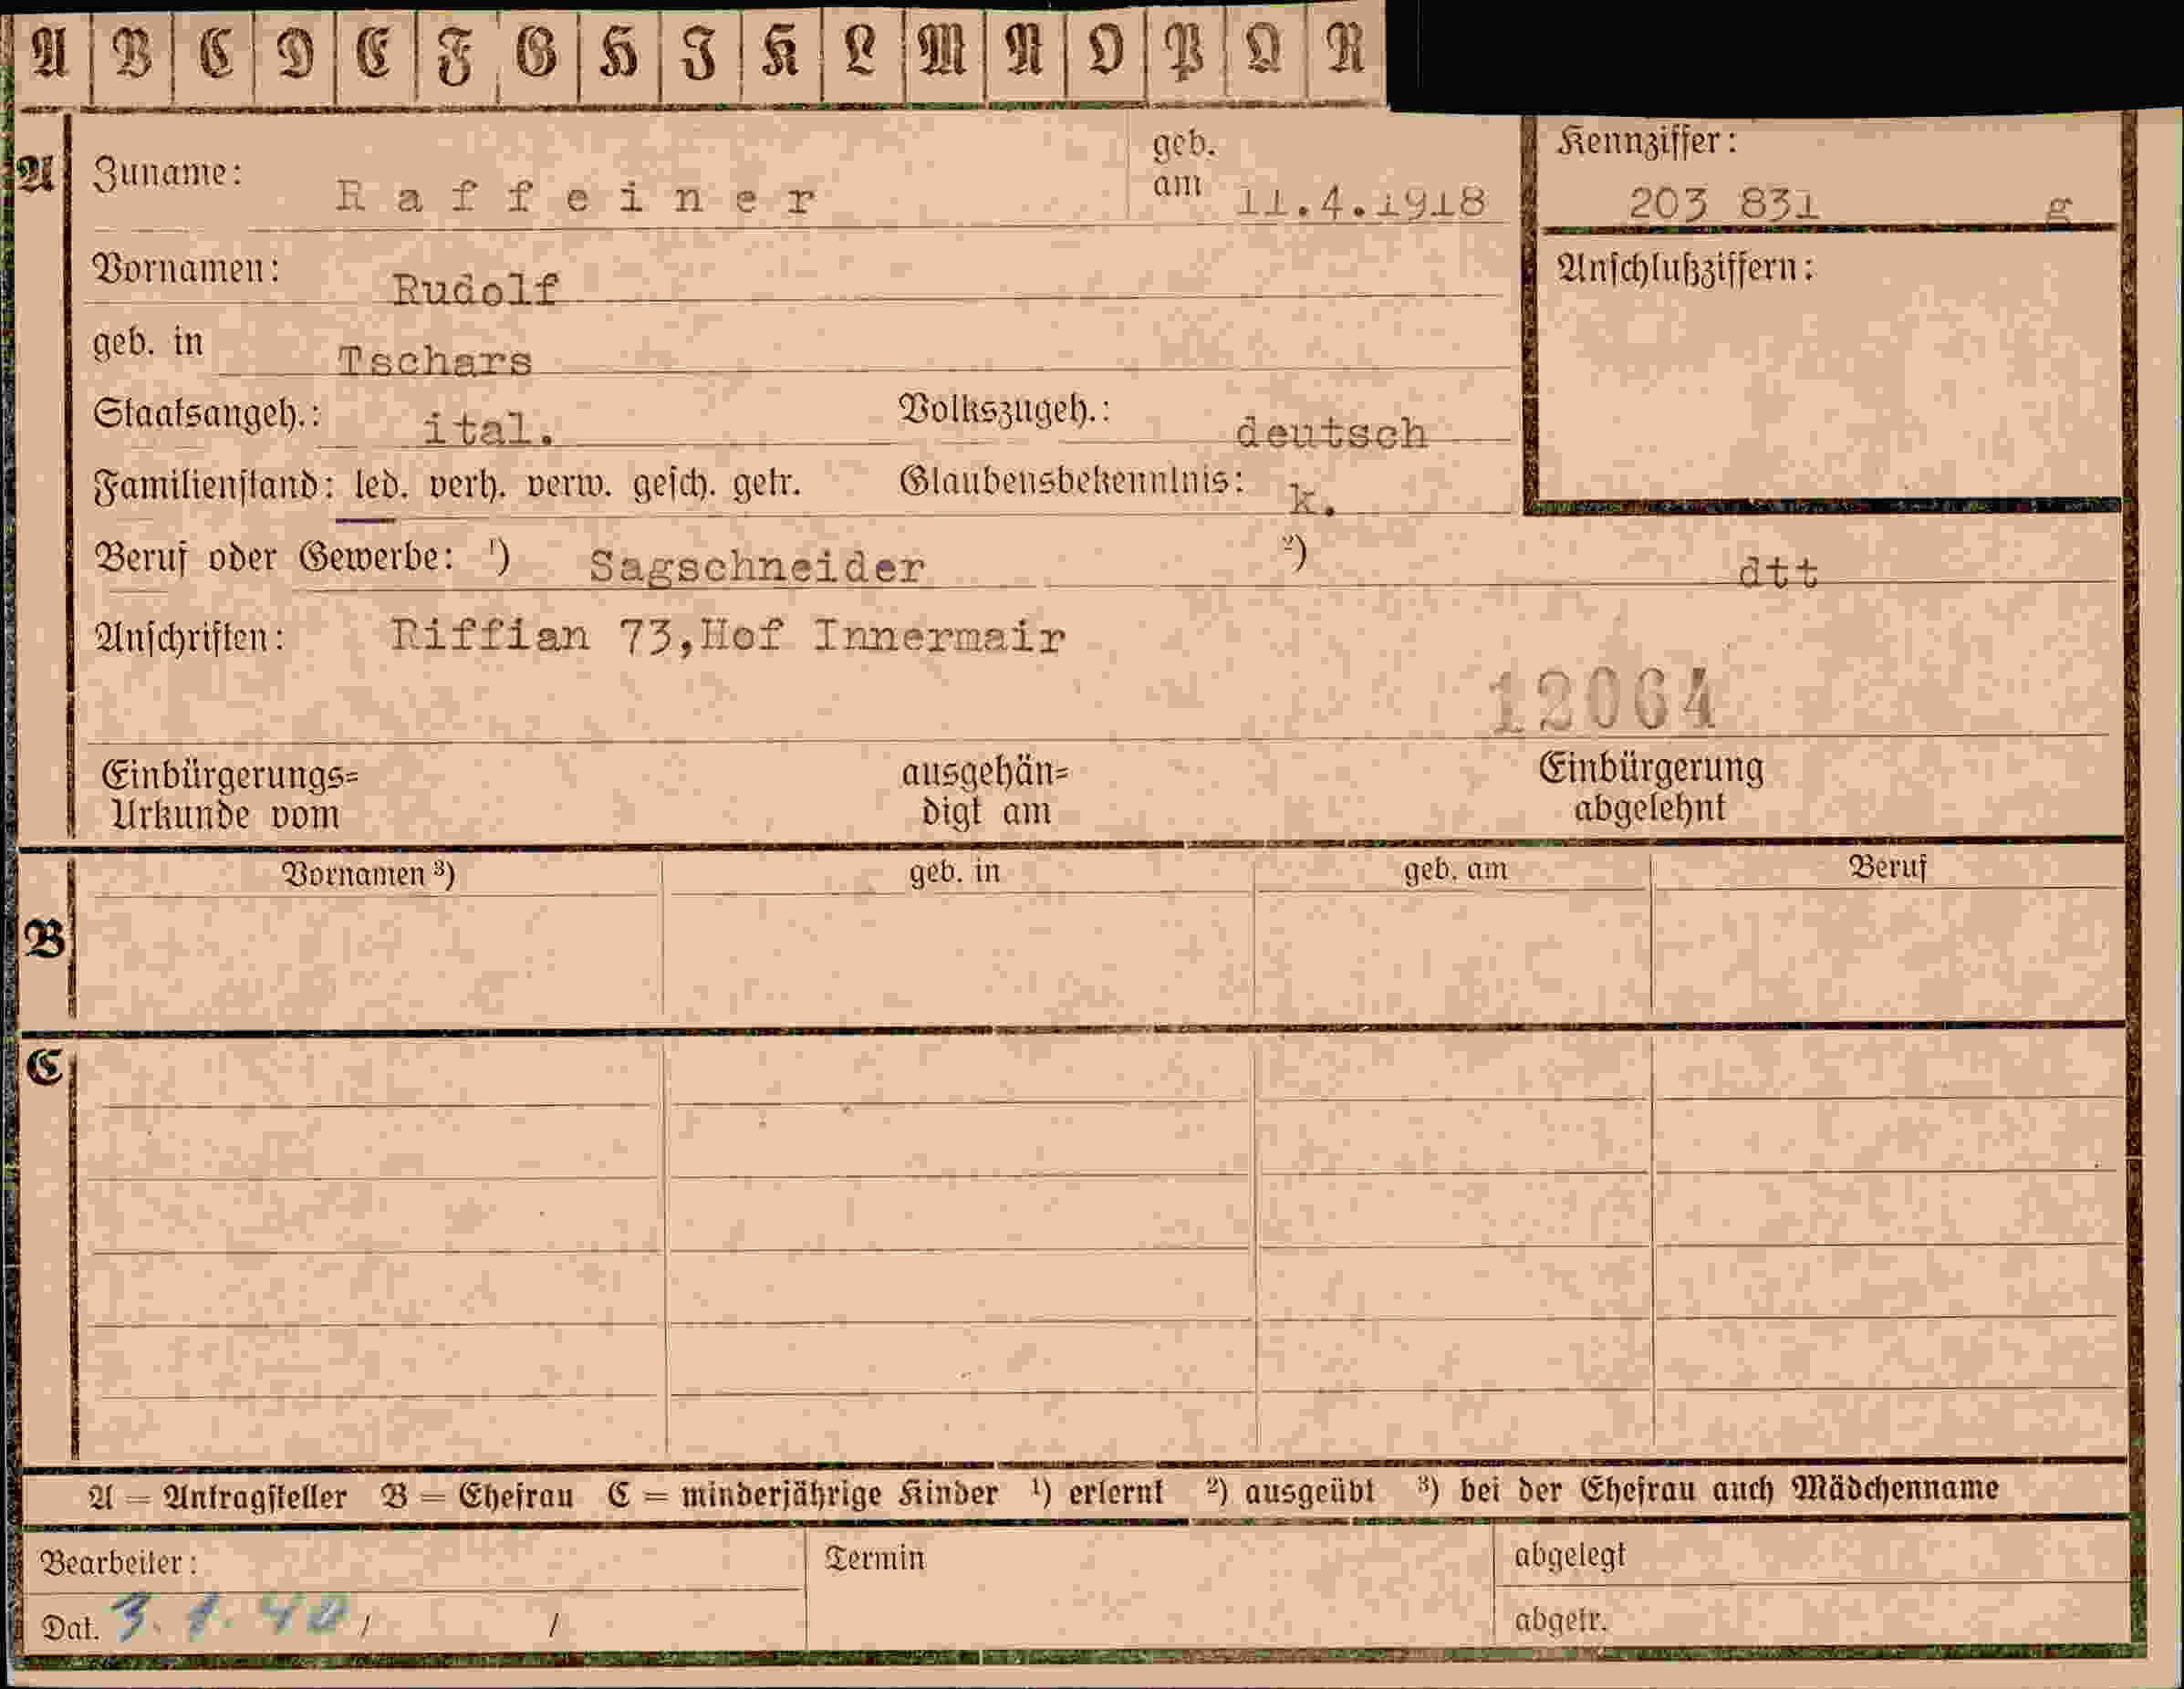 A B C D E F G H I K L M N O P Q R
A Zuname: Raffeiner geb. am 11.4.1918 Kennziffer: 203 831 g
Vornamen: Rudolf Anschlußziffern:
geb. in Tschars
Staatsangeh.: ital. Volkszugeh.: deutsch
Familienstand: led. verh. verw. gesch. getr. Glaubensbekenntnis: k.
Beruf oder Gewerbe: ¹) Sagschneider ²) dtt
Anschriften: Riffian 73,Hof Innermair
12064
Einbürgerungs= ausgehän= Einbürgerung
Urkunde vom digt am abgelehnt
Vornamen ³) geb. in geb. am Beruf
B
C
A = Antragsteller B = Ehefrau C = minderjährige Kinder ¹) erlernt ²) ausgeübt ³) bei der Ehefrau auch Mädchenname
Bearbeiter: Termin abgelegt
Dat. 3. 1. 40 / / abgetr.